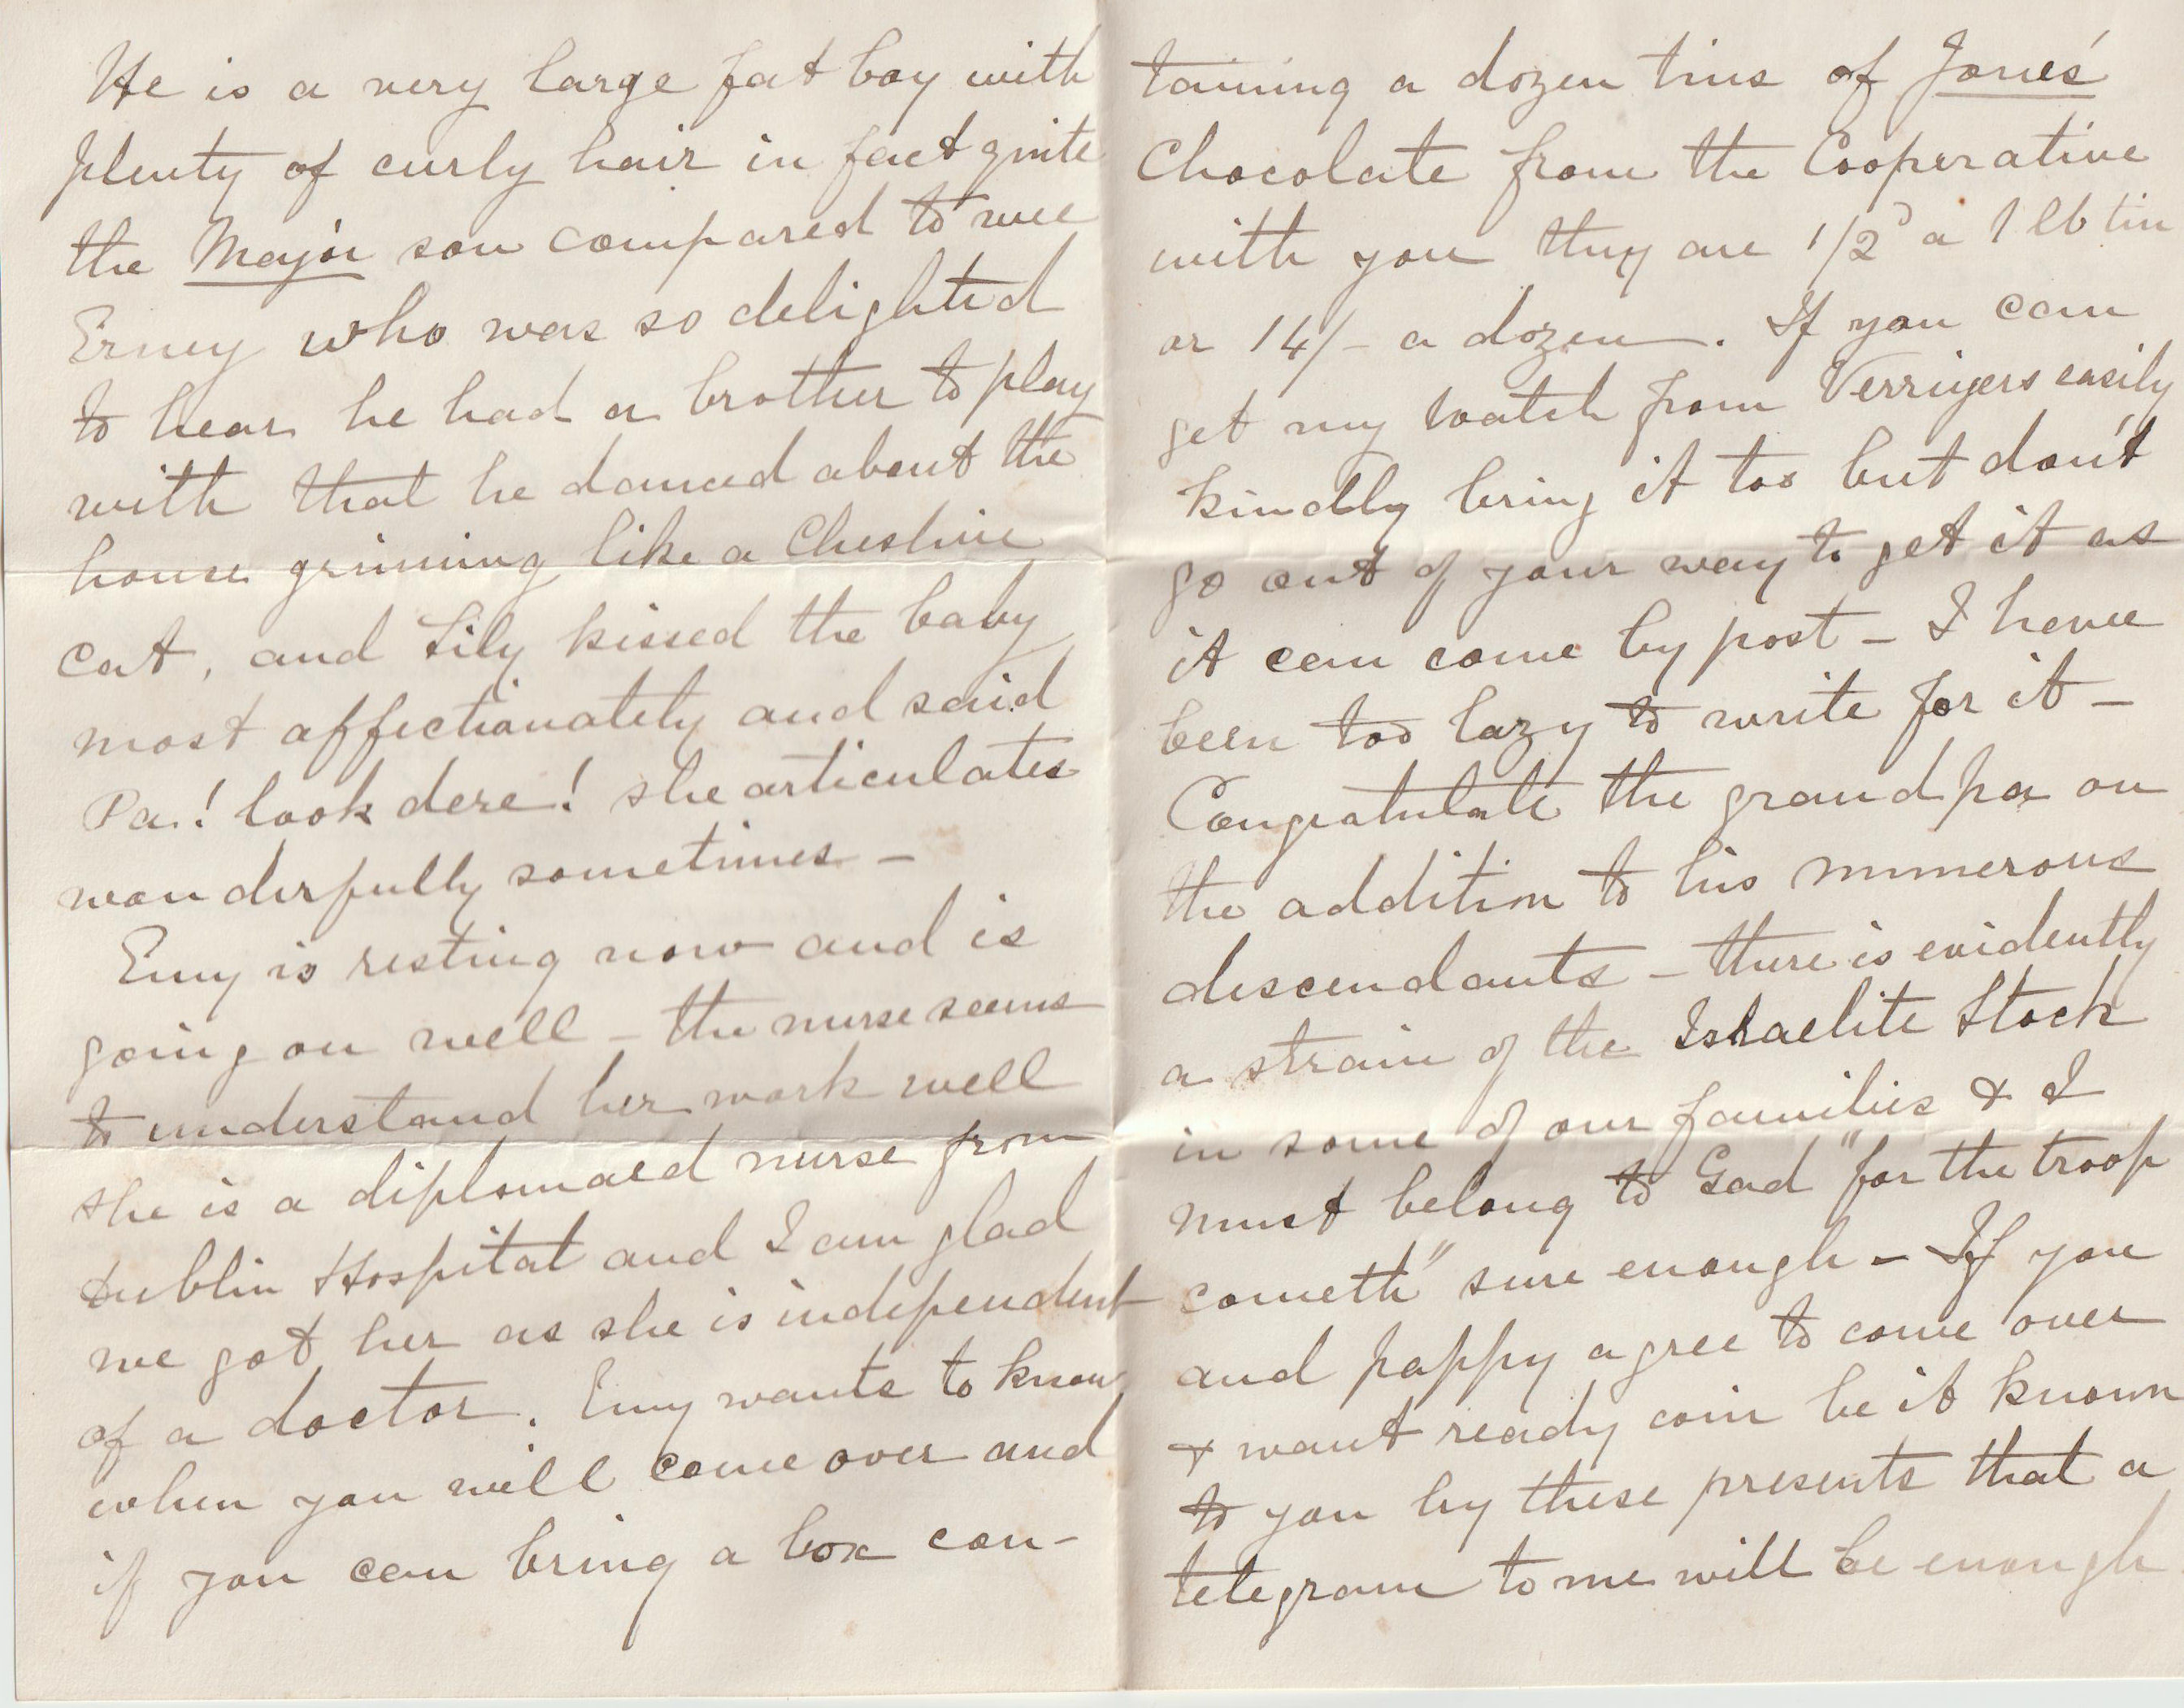 He is a very large fat boy with
plenty of curly hair in fact quite
the Major son compared to wee
Erney who was so delighted
to hear he had a brother to play
with that he danced about the
house grinning like a Cheshire
cat, and Lily kissed the baby
most affectionately and said
Pa! look dere! she articulates
wonderfully sometimes –
Emy is resting now and is
going on well – the nurse seems
to understand her work well
she is a diplomaed nurse from
Dublin Hospital and I am glad
we got her as she is independent
of a doctor. Emy wants to know
when you will come over and
if you can bring a box con-
taining a dozen tins of Jones'
Chocolate from the Cooperative
with you they are 1/2 a 1 lb tin
or 14/- a dozen. If you can
get my watch from easily
kindly bring it too but don't
go out of your way to get it as
it can come by post – I have
been too lazy to write for it –
Congratulate the grandpa on
the addition to his numerous
descendants – there is evidently
a strain of the Israelite Stock
in some of our families & I
must belong to Gad "for the troop
cometh" sure enough – If you
and pappy agree to come over
& want ready coin be it known
to you by these presents that a
telegram to me will be enough